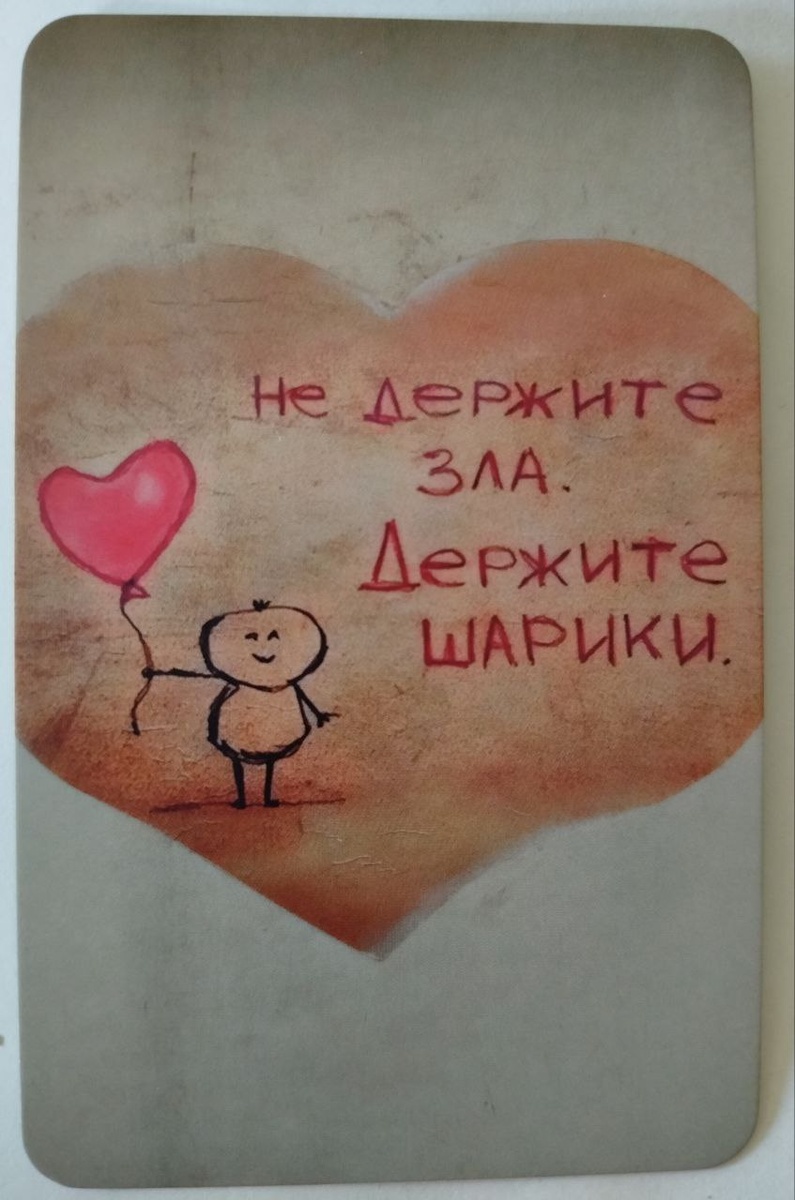 Не держите
зла.
Держите
шарики.